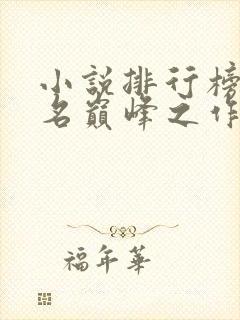 小說排行榜
名巔峰之作
福年華